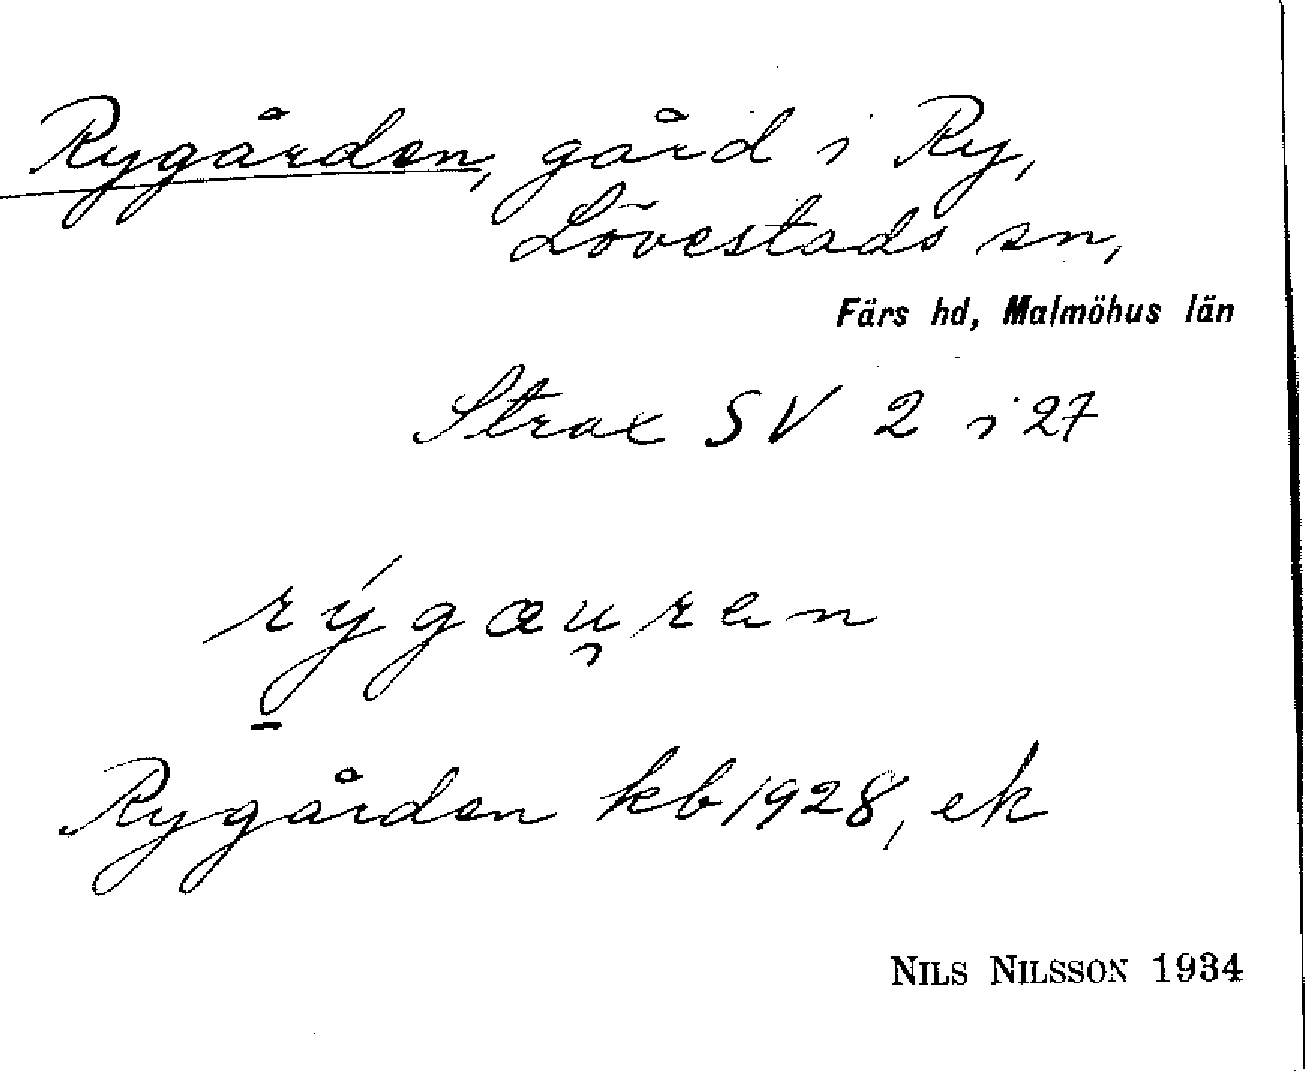 Rygården, gård i Ry,
Lövestads sn,
Färs hd, Malmöhus län
Strax SV 2 i 27
rýgæu̯ren
Rygården kb 1928, ek
NILS NILSSON 1934